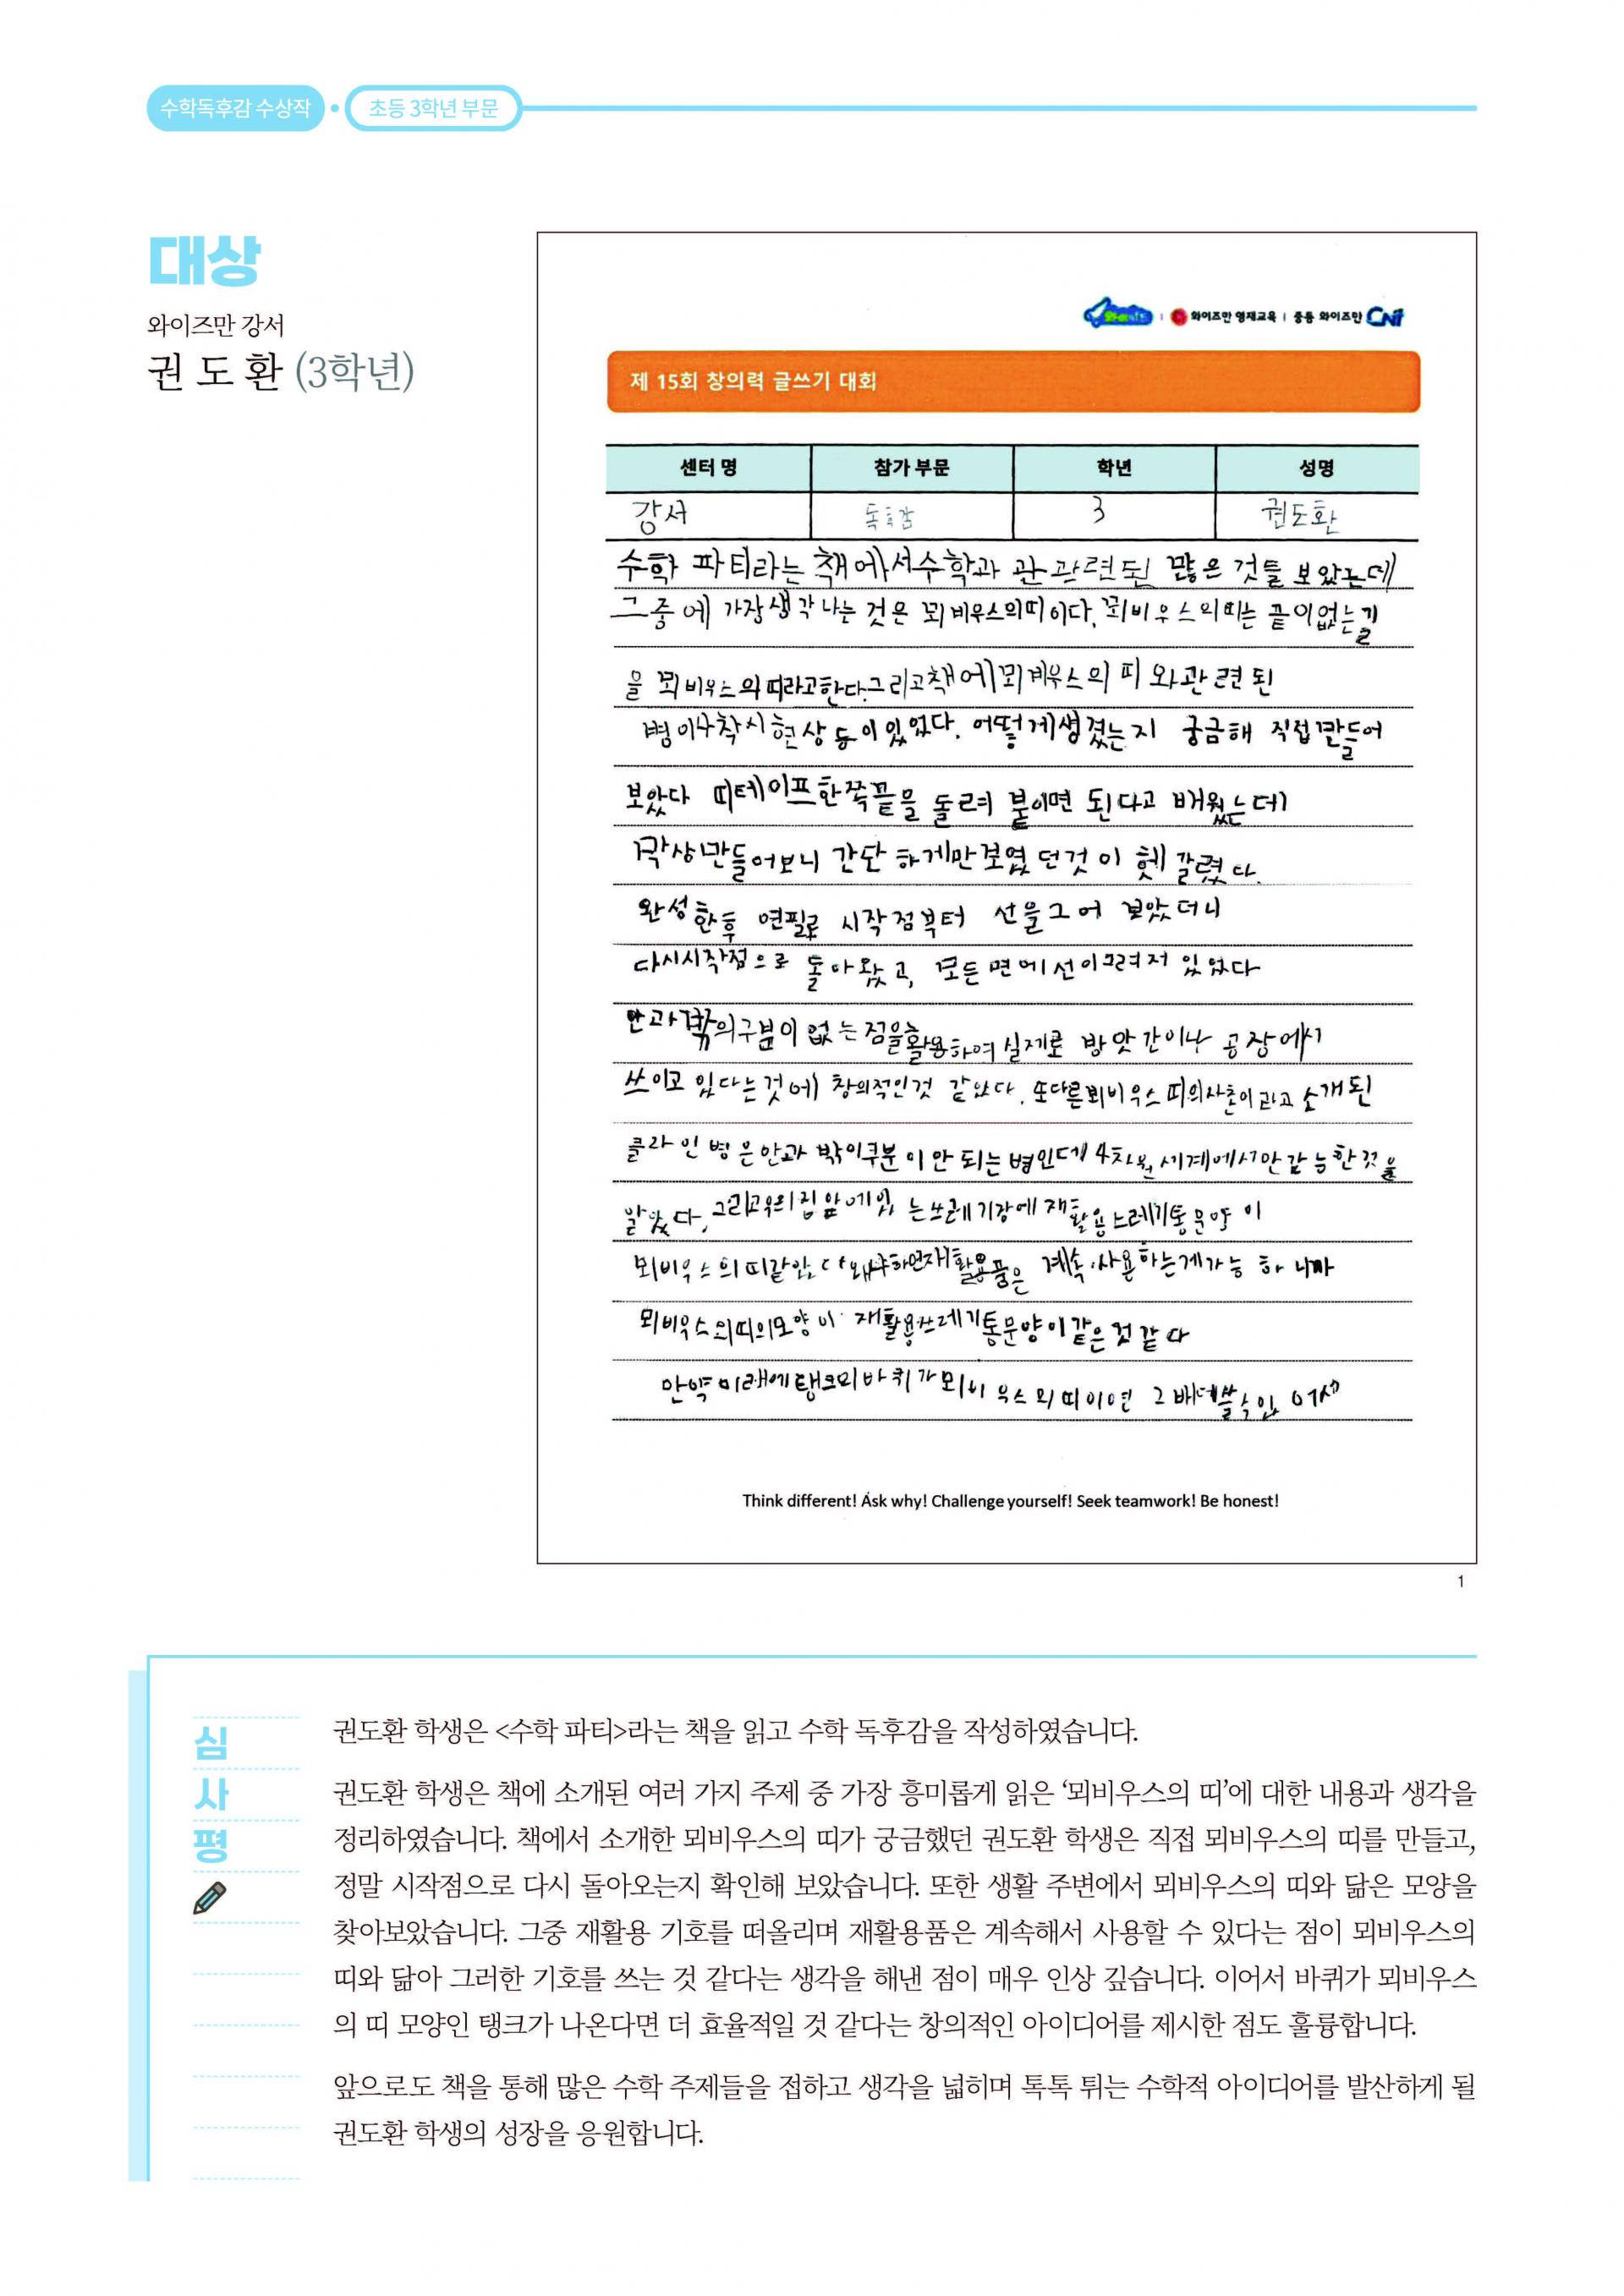 수학독후감 수상작 • 초등 3학년 부문
대상
와이즈만 강서
권 도 환 (3학년)
와이즈만 영재교육 | 중등 와이즈만 CNI
제 15회 창의력 글쓰기 대회
센터 명 참가 부문 학년 성명
강서 독후감 3 권도환
수학 파티라는 책에서 수학과 관 관련된 많은 것들 보았는데
그 중에 가장 생각나는 것은 뫼비우스의 띠이다. 뫼비우스의 띠는 끝이없는길
을 뫼비우스의 띠라고한다. 그리고 책에 뫼비우스의 띠 와관련된
병이나 착시현상 등이 있었다. 어떻게생겼는지 궁금해 직접만들어
보았다 띠테이프한쪽끝을 돌려 붙이면 된다고 배웠는데
막상만들어보니 간단 하게만보였 던것 이 헷갈렸다.
완성한후 연필로 시작점부터 선을그어 보았더니
다시시작점으로 돌아왔고, 모든 면에선이그려져 있었다
안과 밖의구분이 없는 점을 활용하여 실제로 방앗간이나 공장에서
쓰이고 있다는것에 창의적인것 같았다. 또다른뫼비우스 띠의사촌이라고 소개된
클라인 병은안과 밖이구분 이 안 되는 병인데 4차원 세계에서만 가능한것을
알았다. 그리고우리집 앞에있 는쓰레기장에 재활용쓰레기통문양 이
뫼비우스의띠같았다 왜냐하면재활용품은 계속 사용하는게가능 하니까
뫼비우스의띠의모양이 재활용쓰레기통문양이같은것같다
만약 미래에탱크의바퀴가뫼비우스의띠이면 그 배데쓸수있어서
Think different! Ask why! Challenge yourself! Seek teamwork! Be honest!
1
심사평
권도환 학생은 <수학 파티>라는 책을 읽고 수학 독후감을 작성하였습니다.
권도환 학생은 책에 소개된 여러 가지 주제 중 가장 흥미롭게 읽은 ‘뫼비우스의 띠’에 대한 내용과 생각을
정리하였습니다. 책에서 소개한 뫼비우스의 띠가 궁금했던 권도환 학생은 직접 뫼비우스의 띠를 만들고,
정말 시작점으로 다시 돌아오는지 확인해 보았습니다. 또한 생활 주변에서 뫼비우스의 띠와 닮은 모양을
찾아보았습니다. 그중 재활용 기호를 떠올리며 재활용품은 계속해서 사용할 수 있다는 점이 뫼비우스의
띠와 닮아 그러한 기호를 쓰는 것 같다는 생각을 해낸 점이 매우 인상 깊습니다. 이어서 바퀴가 뫼비우스
의 띠 모양인 탱크가 나온다면 더 효율적일 것 같다는 창의적인 아이디어를 제시한 점도 훌륭합니다.
앞으로도 책을 통해 많은 수학 주제들을 접하고 생각을 넓히며 톡톡 튀는 수학적 아이디어를 발산하게 될
권도환 학생의 성장을 응원합니다.